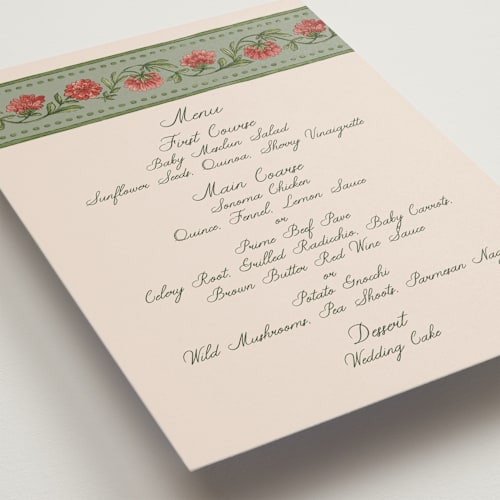 Menu
First Course
Baby Mesclun Salad
Sunflower Seeds, Quinoa, Sherry Vinaigrette
Main Coarse
Sonoma Chicken
Quince, Fennel, Lemon Sauce
or
Prime Beef Pave
Celery Root, Grilled Radicchio, Baby Carrots,
Brown Butter Red Wine Sauce
or
Potato Gnocchi
Wild Mushrooms, Pea Shoots, Parmesan Nag
Dessert
Wedding Cake